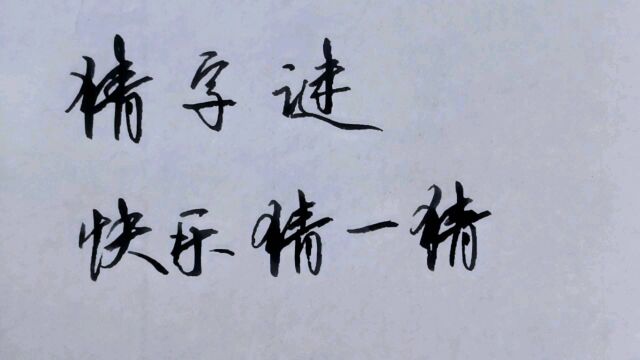 猜字谜
快乐猜一猜